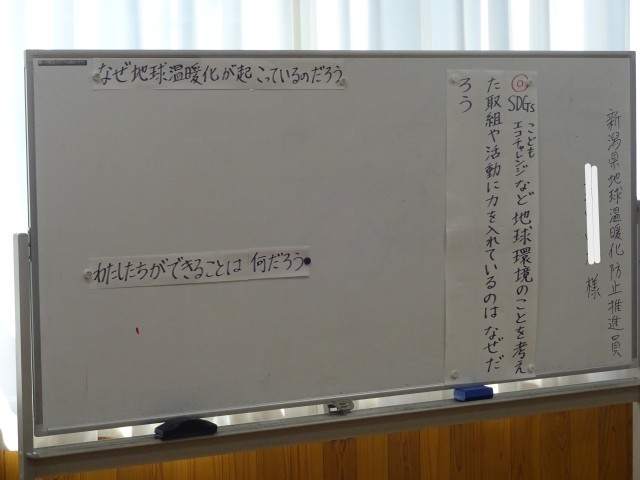 新潟県地球温暖化防止推進員
様
SDGs こどもエコチャレンジなど地球環境のことを考え
た取組や活動に力を入れているのはなぜだ
ろう
なぜ地球温暖化が起こっているのだろう
わたしたちができることは何だろう